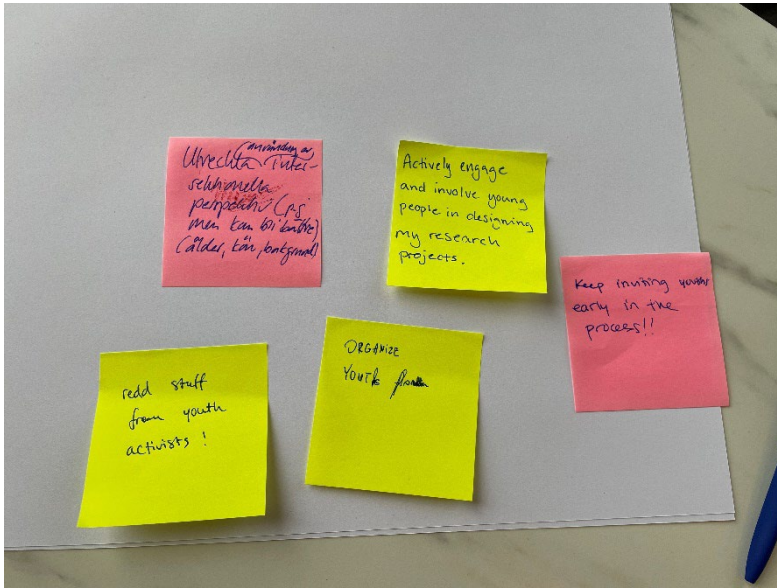 (användning av
Utveckla inter-
sektionella
perspektiv (pg
men kan bli bättre)
(ålder, kön, bakgrund)
Actively engage
and involve young
people in designing
my research
projects.
Keep inviting youth
early in the
process!!
redd stuff
from youth
activists !
ORGANIZE
YOUTH